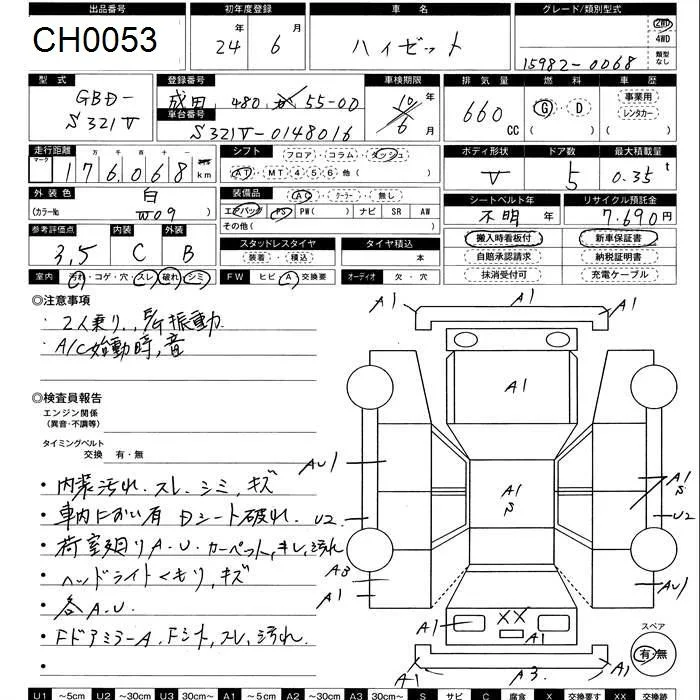 出品番号
CH0053
初年度登録
24年 6月
車名
ハイゼット
グレード/類別型式
15982-0068
2WD
4WD
類型なし
型式
GBD-S321V
登録番号
成田 480 か 55-00
車台番号
S321V-0148016
車検期限
10年
6月
排気量
660 CC
燃料
G・D
( )
車歴
事業用
レンタカー
( )
走行距離
マーク 十万 千百十一
176,068 km
シフト
フロア・コラム・ダッシュ
AT・MT 4 5 6 他( )
ボディ形状
V
ドア数
5
最大積載量
0.35 t
外装色
白
(カラーNo W09 )
装備品
AC・クーラー・無し
エアバッグ PS PW( ) ナビ SR AW
その他( )
シートベルト年
不明 年
リサイクル預託金
7,690円
参考評価点
3.5
内装
C
外装
B
スタッドレスタイヤ
装着・積込
タイヤ積込
本
搬入時看板付
新車保証書
自賠承認請求
納税証明書
抹消受付可
充電ケーブル
室内 汚れ・コゲ・穴・スレ・破れ・シミ
FW ヒビ・A・交換要
オーディオ 欠・穴
◎注意事項
・2人乗り、E/G振動
・A/C始動時、音
◎検査員報告
エンジン関係
(異音・不調等)
タイミングベルト
交換 有・無
・内装汚れ、スレ、シミ、キズ
・車内におい有 Dシート破れ、
・荷室廻りA.U. カーペット、キレ、汚れ
・ヘッドライトくもり、キズ
・各A.U.
・FドアミラーA、Fシート、スレ、汚れ、
A1
A1
A1
A1
A1
S
AU1
A1
S
U2
U2
A3
A1
AU1
XX
A1
A1
A1
A3
A1
スペア
有・無
U1 ~5cm U2 ~30cm U3 30cm~ A1 ~5cm A2 ~30cm A3 30cm~ S サビ C 腐食 X 交換要す XX 交換跡